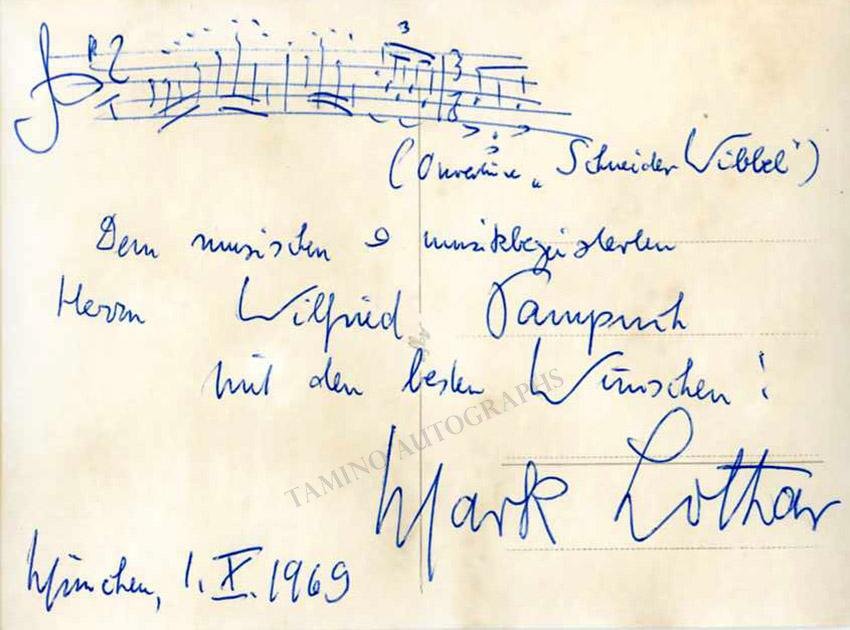 (Ouvertüre „Schneider Wibbel")
Dem musischen & musikbegeisterten
Herrn Wilfried
mit den besten Wünschen!
TAMINO AUTOGRAPHS
Mark Lothar
München, 1. X. 1969